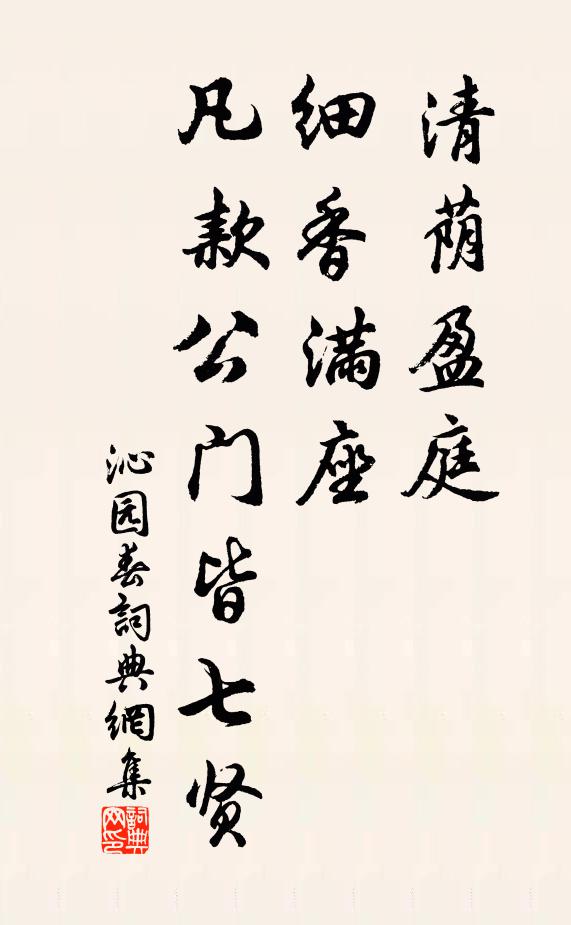 清荫盈庭
细香满座
凡款公门皆七贤
沁园春詞典網集
詞典网印